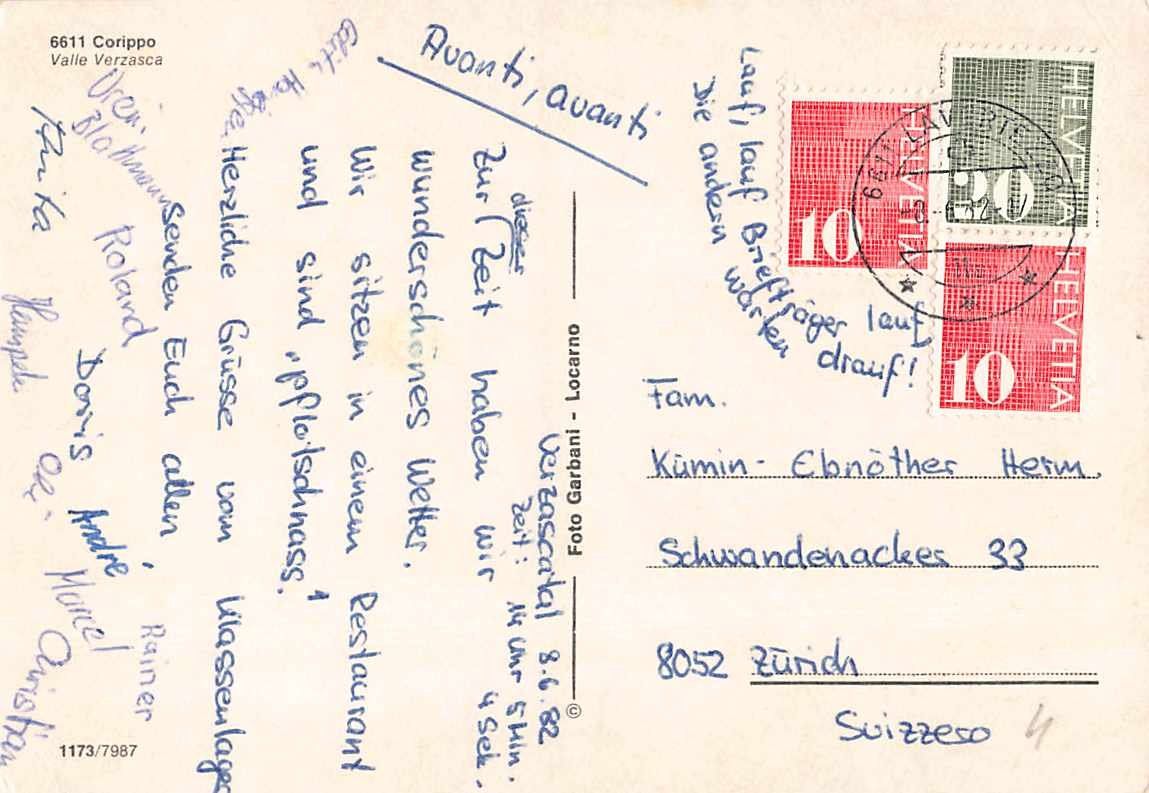 6611 Corippo
Valle Verzasca
Avanti, avanti
Verzascatal 8.6.82
Zeit: 14 Uhr 5 Min. 4 Sek.
Zur dieser Zeit haben wir
wunderschönes Wetter.
Wir sitzen in einem Restaurant
und sind „pflotschnass".
Herzliche Grüsse vom Klassenlager
senden Euch allen
Rainer
Vreni Blattmann
Roland
Doris
André
Marcel
Christian
Anita
1173/7987
Foto Garbani - Locarno
©
Lauf, lauf Briefträger lauf,
Die andern warten drauf!
HELVETIA
10
HELVETIA
20
HELVETIA
10
6611
Fam.
Kümin- Ebnöther Herm.
Schwandenacker 33
8052 Zürich
Svizzero
4